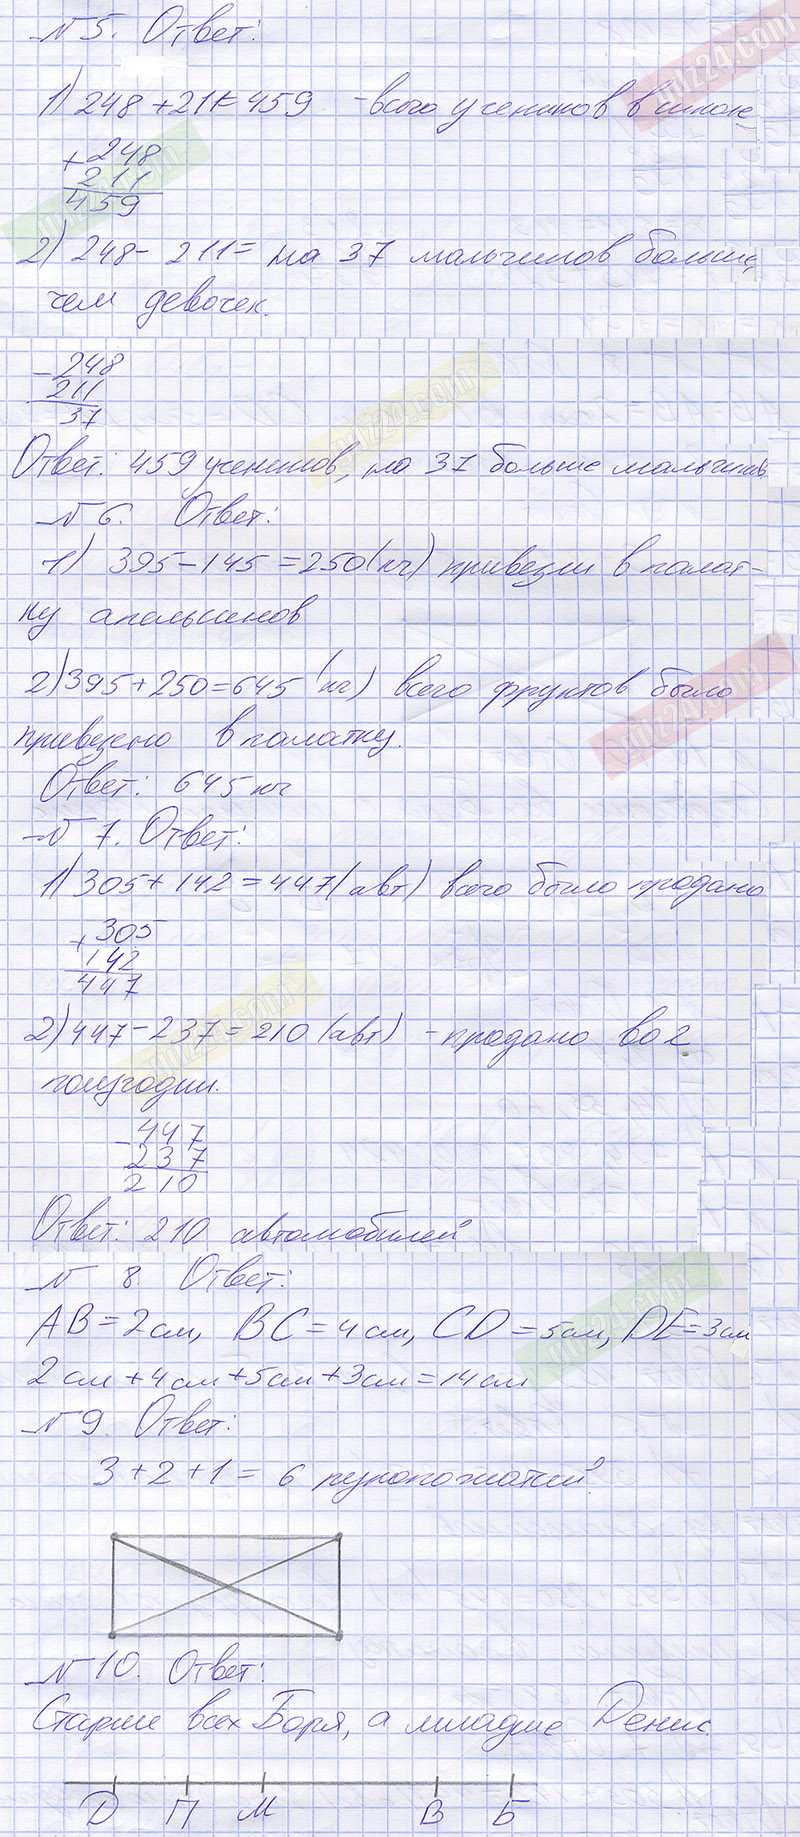 № 5. Ответ:
1) 248 + 211 = 459 - всего учеников в школе
+ 248
211
459
2) 248 - 211 = на 37 мальчиков больше,
чем девочек.
- 248
211
37
Ответ: 459 учеников, на 37 больше мальчиков
№ 6. Ответ:
1) 395 - 145 = 250 (кг) привезли в палат-
ку апельсинов
2) 395 + 250 = 645 (кг) всего фруктов было
привезено в палатку.
Ответ: 645 кг
№ 7. Ответ:
1) 305 + 142 = 447 (авт) всего было продано
+ 305
142
447
2) 447 - 237 = 210 (авт) - продано во 2
полугодии.
- 447
237
210
Ответ: 210 автомобилей
№ 8. Ответ:
AB = 2 см, BC = 4 см, CD = 5 см, DE = 3 см
2 см + 4 см + 5 см + 3 см = 14 см
№ 9. Ответ:
3 + 2 + 1 = 6 рукопожатий.
№ 10. Ответ:
Старше всех Боря, а младше Денис.
Д П М В Б